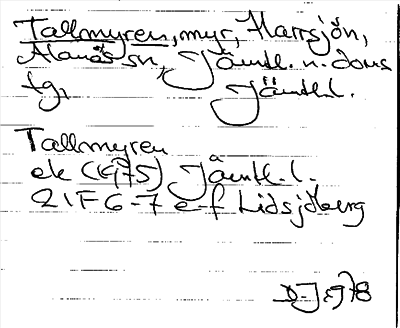 Tallmyren, myr, Harrsjön,
Alanäs sn, Jämtl. n. doms
tg, Jämtl.l.
Tallmyren
ek (1975) Jämtl.l.
21F 6-7 e-f Lidsjöberg
1978